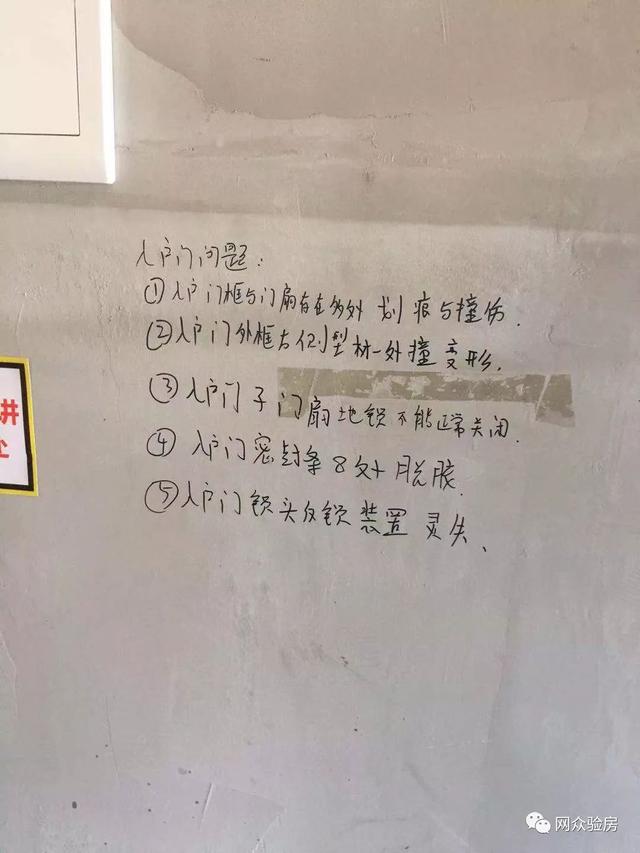 入户门问题:
①入户门框与门扇存在多处划痕与撞伤.
②入户门外框右侧型材一处撞变形.
③入户门子门扇地锁不能正常关闭.
④入户门密封条8处脱胶.
⑤入户门锁头反锁装置灵失、
讲
网众验房